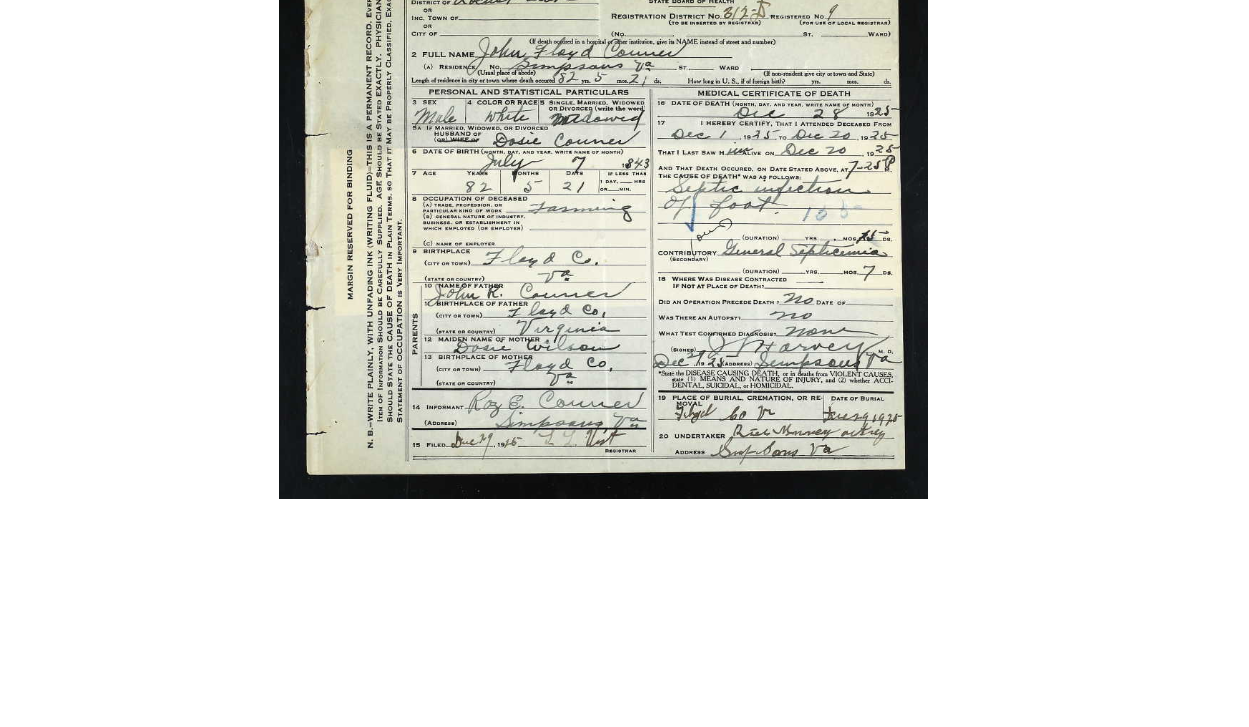 STATE BOARD OF HEALTH
DISTRICT OF
OR
INC. TOWN OF
OR
CITY OF
REGISTRATION DISTRICT No. 312-D REGISTERED No. 9
(TO BE INSERTED BY REGISTRAR) (FOR USE OF LOCAL REGISTRAR)
(No. ST. WARD)
(If death occurred in a hospital or other institution, give its NAME instead of street and number)
2 FULL NAME John Floyd Conner
(A) RESIDENCE. No. Simpsons Va ST WARD
(Usual place of abode) (If non-resident give city or town and State)
Length of residence in city or town where death occurred 82 yrs. 5 mos. 21 ds. How long in U. S., if of foreign birth? yrs. mos. ds.
PERSONAL AND STATISTICAL PARTICULARS
3 SEX 4 COLOR OR RACE 5 SINGLE, MARRIED, WIDOWED
OR DIVORCED (write the word)
Male White Widowed
5A IF MARRIED, WIDOWED, OR DIVORCED
HUSBAND OF
(OR) WIFE OF Dosie Conner
6 DATE OF BIRTH (MONTH, DAY, AND YEAR, WRITE NAME OF MONTH)
July 7 1843
7 AGE YEARS MONTHS DAYS IF LESS THAN
1 DAY, HRS
OR MIN.
82 5 21
8 OCCUPATION OF DECEASED
(A) TRADE, PROFESSION, OR
PARTICULAR KIND OF WORK Farming
(B) GENERAL NATURE OF INDUSTRY,
BUSINESS, OR ESTABLISHMENT IN
WHICH EMPLOYED (OR EMPLOYER)
(C) NAME OF EMPLOYER
9 BIRTHPLACE
(CITY OR TOWN) Floyd Co.
(STATE OR COUNTRY) Va
PARENTS
10 NAME OF FATHER
John R. Conner
11 BIRTHPLACE OF FATHER
(CITY OR TOWN) Floyd Co,
(STATE OR COUNTRY) Virginia
12 MAIDEN NAME OF MOTHER
Dosie Wilson
13 BIRTHPLACE OF MOTHER
(CITY OR TOWN) Floyd Co.
(STATE OR COUNTRY) Va
14 INFORMANT Roy E. Conner
(ADDRESS) Simpsons, Va
15 FILED Dec 29, 1925
REGISTRAR
MEDICAL CERTIFICATE OF DEATH
16 DATE OF DEATH (MONTH, DAY, AND YEAR, WRITE NAME OF MONTH)
Dec 28 1925
17 I HEREBY CERTIFY, THAT I ATTENDED DECEASED FROM
Dec 1 1925 TO Dec 20 1925
THAT I LAST SAW HIM ALIVE ON Dec 20 1925
AND THAT DEATH OCCURED, ON DATE STATED ABOVE, AT 7-25 P
THE CAUSE OF DEATH* WAS AS FOLLOWS:
Septic infection
of foot.
(DURATION) YRS MOS. 15 DS.
CONTRIBUTORY General Septicemia
(SECONDARY)
(DURATION) YRS. MOS. 7 DS.
18 WHERE WAS DISEASE CONTRACTED
IF NOT AT PLACE OF DEATH?
DID AN OPERATION PRECEDE DEATH? no DATE OF
WAS THERE AN AUTOPSY? no
WHAT TEST CONFIRMED DIAGNOSIS? none
(SIGNED) Harvey M. D.
Dec 29, 1925 (ADDRESS) Simpsons Va
*State the DISEASE CAUSING DEATH, or in deaths from VIOLENT CAUSES,
state (1) MEANS AND NATURE OF INJURY, and (2) whether ACCI-
DENTAL, SUICIDAL, or HOMICIDAL.
19 PLACE OF BURIAL, CREMATION, OR RE-
MOVAL DATE OF BURIAL
Floyd Co Va 1925
20 UNDERTAKER
ADDRESS Simpsons Va
MARGIN RESERVED FOR BINDING
N. B.—WRITE PLAINLY, WITH UNFADING INK (WRITING FLUID)—THIS IS A PERMANENT RECORD.
ITEM OF INFORMATION SHOULD BE CAREFULLY SUPPLIED. AGE SHOULD BE STATED EXACTLY. PHYSICIAN
SHOULD STATE THE CAUSE OF DEATH IN PLAIN TERMS, SO THAT IT MAY BE PROPERLY CLASSIFIED.
STATEMENT OF OCCUPATION IS VERY IMPORTANT.